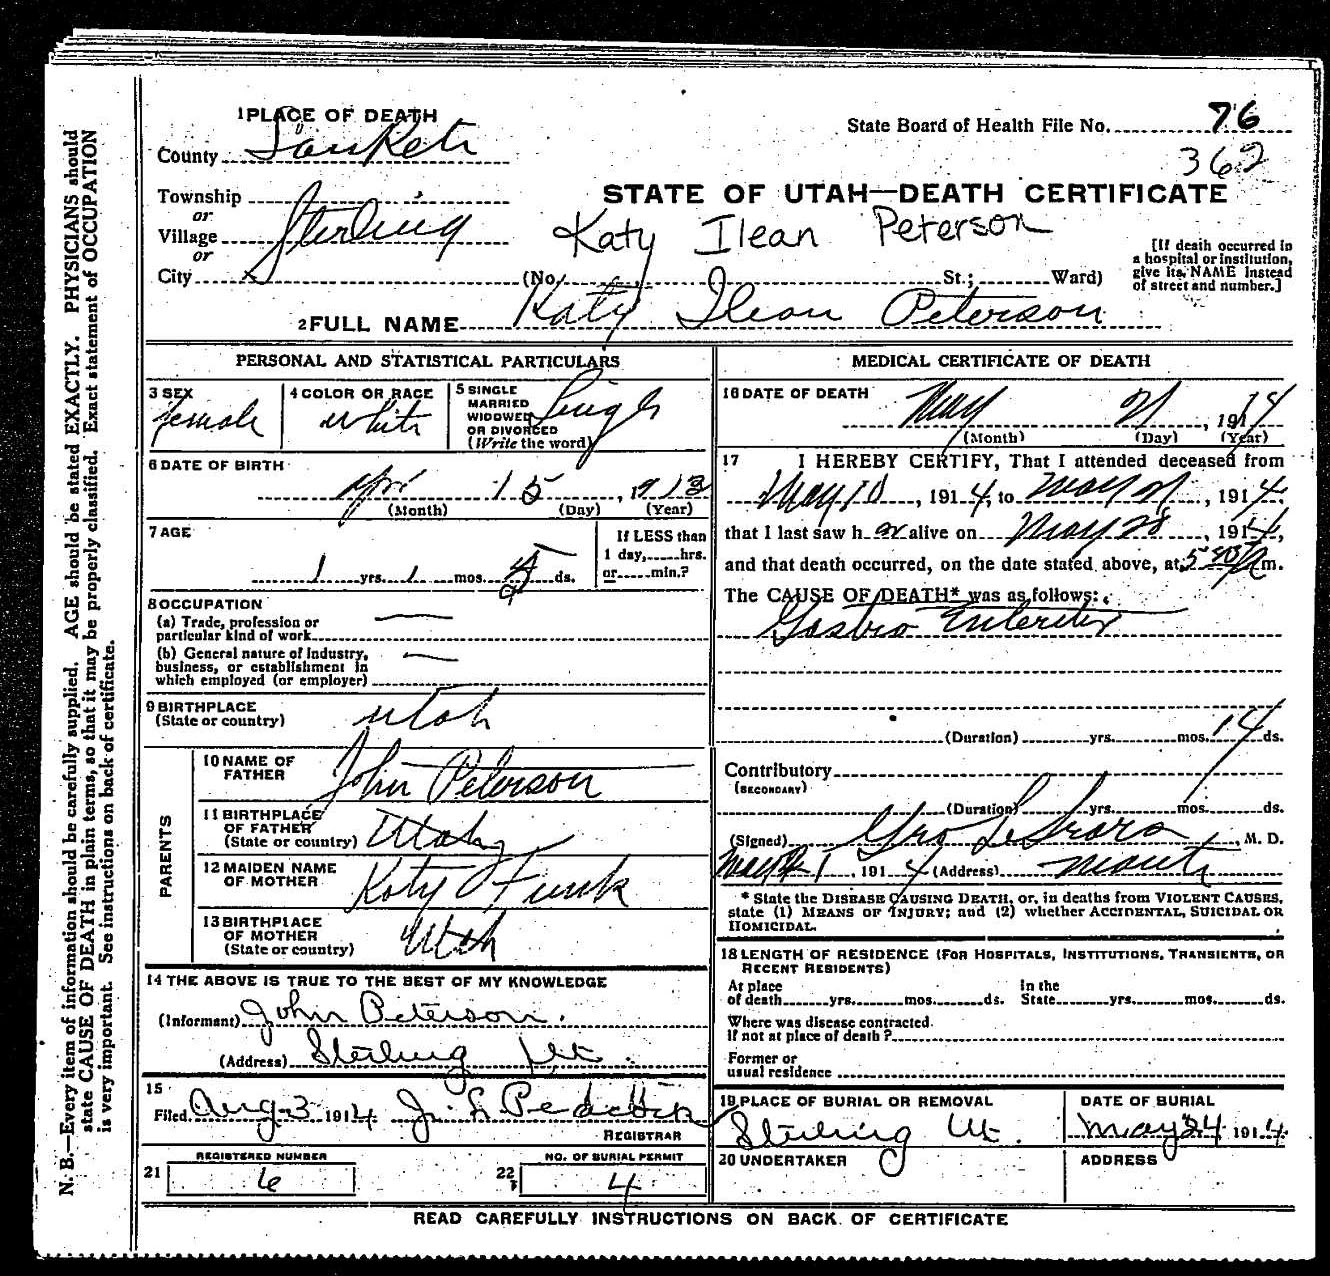 1 PLACE OF DEATH
County SanPete
State Board of Health File No. 76
362
Township
or
Village Sterling
or
City
STATE OF UTAH—DEATH CERTIFICATE
Katy Ilean Peterson
(No. St.; Ward)
[If death occurred in
a hospital or institution,
give its NAME instead
of street and number.]
2 FULL NAME Katy Ilean Peterson
PERSONAL AND STATISTICAL PARTICULARS
3 SEX female
4 COLOR OR RACE white
5 SINGLE
MARRIED
WIDOWED
OR DIVORCED
(Write the word)
Single
6 DATE OF BIRTH
Apr 15, 1913
(Month) (Day) (Year)
7 AGE
1 yrs. 1 mos. ds.
If LESS than
1 day, hrs.
or min.?
8 OCCUPATION
(a) Trade, profession or
particular kind of work —
(b) General nature of Industry,
business, or establishment in
which employed (or employer) —
9 BIRTHPLACE
(State or country) Utah
PARENTS
10 NAME OF
FATHER John Peterson
11 BIRTHPLACE
OF FATHER
(State or country) Utah
12 MAIDEN NAME
OF MOTHER Katy Funk
13 BIRTHPLACE
OF MOTHER
(State or country) Utah
14 THE ABOVE IS TRUE TO THE BEST OF MY KNOWLEDGE
(Informant) John Peterson.
(Address) Sterling Ut.
15
Filed Aug 3 1914 J. L. Peacock
REGISTRAR
REGISTERED NUMBER
21 6
NO. OF BURIAL PERMIT
22 4
MEDICAL CERTIFICATE OF DEATH
16 DATE OF DEATH
May 21, 1914
(Month) (Day) (Year)
17 I HEREBY CERTIFY, That I attended deceased from
May 10, 1914, to May 21, 1914,
that I last saw her alive on May, 1914,
and that death occurred, on the date stated above, at m.
The CAUSE OF DEATH* was as follows:
Gastro Enteritis
(Duration) yrs. mos. 14 ds.
Contributory
(SECONDARY)
(Duration) yrs. mos. ds.
(Signed) Geo L, M. D.
1914 (Address) Manti
* State the DISEASE CAUSING DEATH, or, in deaths from VIOLENT CAUSES,
state (1) MEANS OF INJURY; and (2) whether ACCIDENTAL, SUICIDAL OR
HOMICIDAL.
18 LENGTH OF RESIDENCE (FOR HOSPITALS, INSTITUTIONS, TRANSIENTS, OR
RECENT RESIDENTS)
At place
of death yrs. mos. ds.
In the
State yrs. mos. ds.
Where was disease contracted
If not at place of death?
Former or
usual residence
19 PLACE OF BURIAL OR REMOVAL
Sterling Ut.
DATE OF BURIAL
May 24 1914
20 UNDERTAKER
ADDRESS
READ CAREFULLY INSTRUCTIONS ON BACK OF CERTIFICATE
N. B.—Every item of information should be carefully supplied. AGE should be stated EXACTLY. PHYSICIANS should
state CAUSE OF DEATH in plain terms, so that it may be properly classified. Exact statement of OCCUPATION
is very important. See instructions on back of certificate.